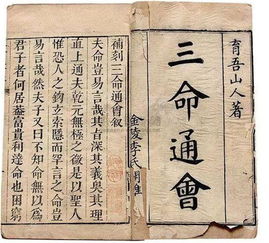 育吾山人著
三命通會
金陵李氏
補刻三命通會叙
夫命豈易言哉其旨深其義奧其理
直上通夫乾元無極之微是以聖人
惟恐人之鈎玄索隱而罕言之命豈
易言哉然夫子又曰不知命無以為
君子者何居葢富貴利達命也困窮